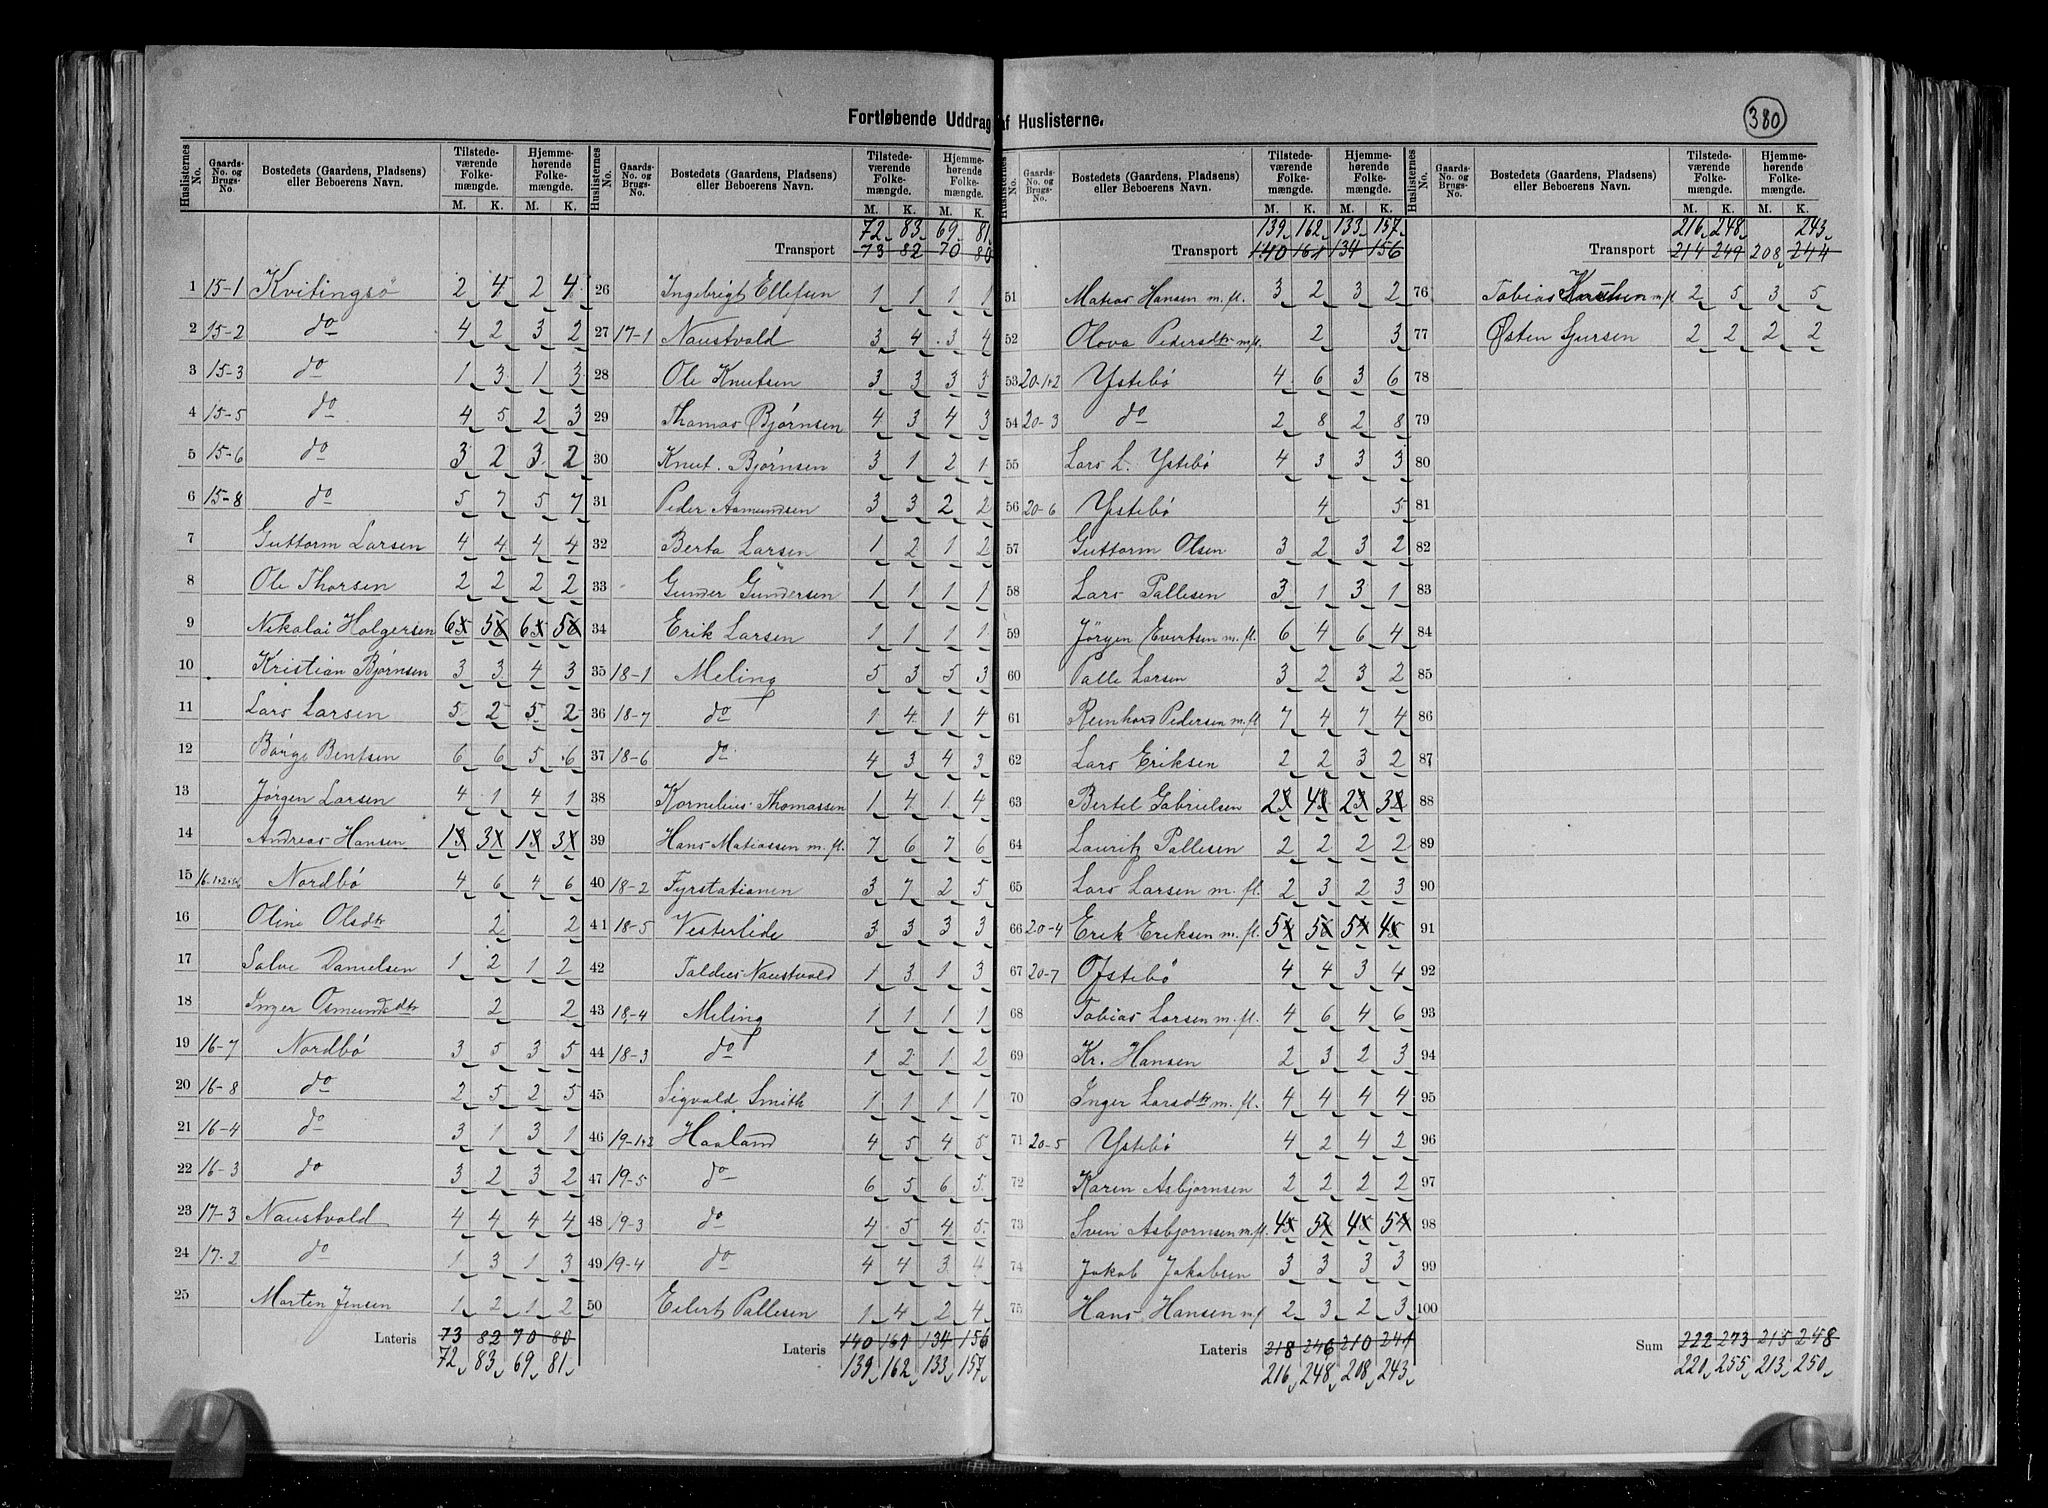 Fortløbende Uddrag af Huslisterne.
380
Huslisternes No. Gaards-No. og Brugs-No. Bostedets (Gaardens, Pladsens) eller Beboerens Navn. Tilstedeværende Folkemængde. M. K. Hjemmehørende Folkemængde. M. K.
1 15-1 Kvitingsø 2 4 2 4
2 15-2 do 4 2 3 2
3 15-3 do 1 3 1 3
4 15-5 do 4 5 2 3
5 15-6 do 3 2 3 2
6 15-8 do 5 7 5 7
7 Guttorm Larsen 4 4 4 4
8 Ole Thorsen 2 2 2 2
9 Nikolai Holgersen 6 5 6 5
10 Kristian Bjørnsen 3 3 4 3
11 Lars Larsen 5 2 5 2
12 Børge Bentsen 6 6 5 6
13 Jørgen Larsen 4 1 4 1
14 Andreas Hansen 1 3 1 3
15 Nordbø 4 6 4 6
16 Oline Olsdtr 2 2
17 Salve Danielsen 1 2 1 2
18 Inger Osmundsdtr 2 2
19 16-7 Nordbø 3 5 3 5
20 16-8 do 2 5 2 5
21 16-4 do 3 1 3 1
22 16-3 do 3 2 3 2
23 17-3 Naustvold 4 4 4 4
24 17-2 do 1 3 1 3
25 Morten Jensen 1 2 1 2
Lateris 73 82 70 80
72 83 69 81
Huslisternes No. Gaards-No. og Brugs-No. Bostedets (Gaardens, Pladsens) eller Beboerens Navn. Tilstedeværende Folkemængde. M. K. Hjemmehørende Folkemængde. M. K.
72 83 69 81
Transport 73 82 70 80
26 Ingebrigt Ellefsen 1 1 1 1
27 17-1 Naustvold 3 4 3 4
28 Ole Knutsen 3 3 3 3
29 Thomas Bjørnsen 4 3 4 3
30 Knut Bjørnsen 3 1 2 1
31 Peder Asmundsen 3 3 2 2
32 Berta Larsen 1 2 1 2
33 Gunder Gundersen 1 1 1 1
34 Erik Larsen 1 1 1 1
35 18-1 Meling 5 3 5 3
36 18-7 do 1 4 1 4
37 18-6 do 4 3 4 3
38 Kornelius Thomassen 1 4 1 4
39 Hans Matiassen m. fl. 7 6 7 6
40 18-2 Fyrstationen 3 7 2 5
41 18-5 Vesterlide 3 3 3 3
42 Naustvold 1 3 1 3
43 18-4 Meling 1 1 1 1
44 18-3 do 1 2 1 2
45 Sigvald Smith 1 1 1 1
46 19-1+2 Haaland 4 5 4 5
47 19-5 do 6 5 6 5
48 19-3 do 4 5 4 5
49 19-4 do 4 4 3 4
50 Eilert Pallesen 1 4 2 4
Lateris 140 161 134 156
139 162 133 157
Huslisternes No. Gaards-No. og Brugs-No. Bostedets (Gaardens, Pladsens) eller Beboerens Navn. Tilstedeværende Folkemængde. M. K. Hjemmehørende Folkemængde. M. K.
139 162 133 157
Transport 140 161 134 156
51 Matias Hansen m. fl. 3 2 3 2
52 Olova Pedersdtr m. fl. 2 3
53 20-1+2 Ystebø 4 6 3 6
54 20-3 do 2 8 2 8
55 Lars L. Ystebø 4 3 3 3
56 20-6 Ystebø 4 5
57 Guttorm Olsen 3 2 3 2
58 Lars Pallesen 3 1 3 1
59 Jörgen Evertsen m. fl. 6 4 6 4
60 Palle Larsen 3 2 3 2
61 Reinhard Pedersen m. fl. 7 4 7 4
62 Lars Eriksen 2 2 3 2
63 Bertel Gabrielsen 2 4 2 3
64 Lauritz Pallesen 2 2 2 2
65 Lars Larsen m. fl. 2 3 2 3
66 20-4 Erik Eriksen m. fl. 5 5 5 4
67 20-7 Ofstebø 4 4 3 4
68 Tobias Larsen m. fl. 4 6 4 6
69 Kr. Hansen 2 3 2 3
70 Inger Larsdtr m. fl. 4 4 4 4
71 20-5 Ystebø 4 2 4 2
72 Karen Asbjørnsen 2 2 2 2
73 Sven Asbjørnsen m. fl. 4 5 4 5
74 Jakob Jakobsen 3 3 3 3
75 Hans Hansen m. f 2 3 2 3
Lateris 218 246 210 241
216 248 208 243
Huslisternes No. Gaards-No. og Brugs-No. Bostedets (Gaardens, Pladsens) eller Beboerens Navn. Tilstedeværende Folkemængde. M. K. Hjemmehørende Folkemængde. M. K.
216 248 243
Transport 214 249 208 244
76 Tobias Knutsen m fl 2 5 3 5
77 Østen Sjursen 2 2 2 2
78
79
80
81
82
83
84
85
86
87
88
89
90
91
92
93
94
95
96
97
98
99
100
Sum 222 273 215 248
220 255 213 250